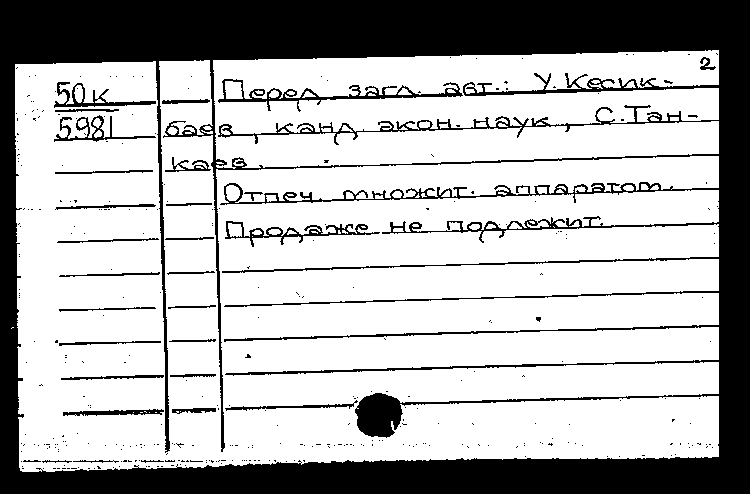 2
50к Перед загл. авт.: У. Кесик-
5981 баев, канд экон. наук, С. Тан-
каев.
Отпеч. множит. аппаратом.
Продаже не подлежит.